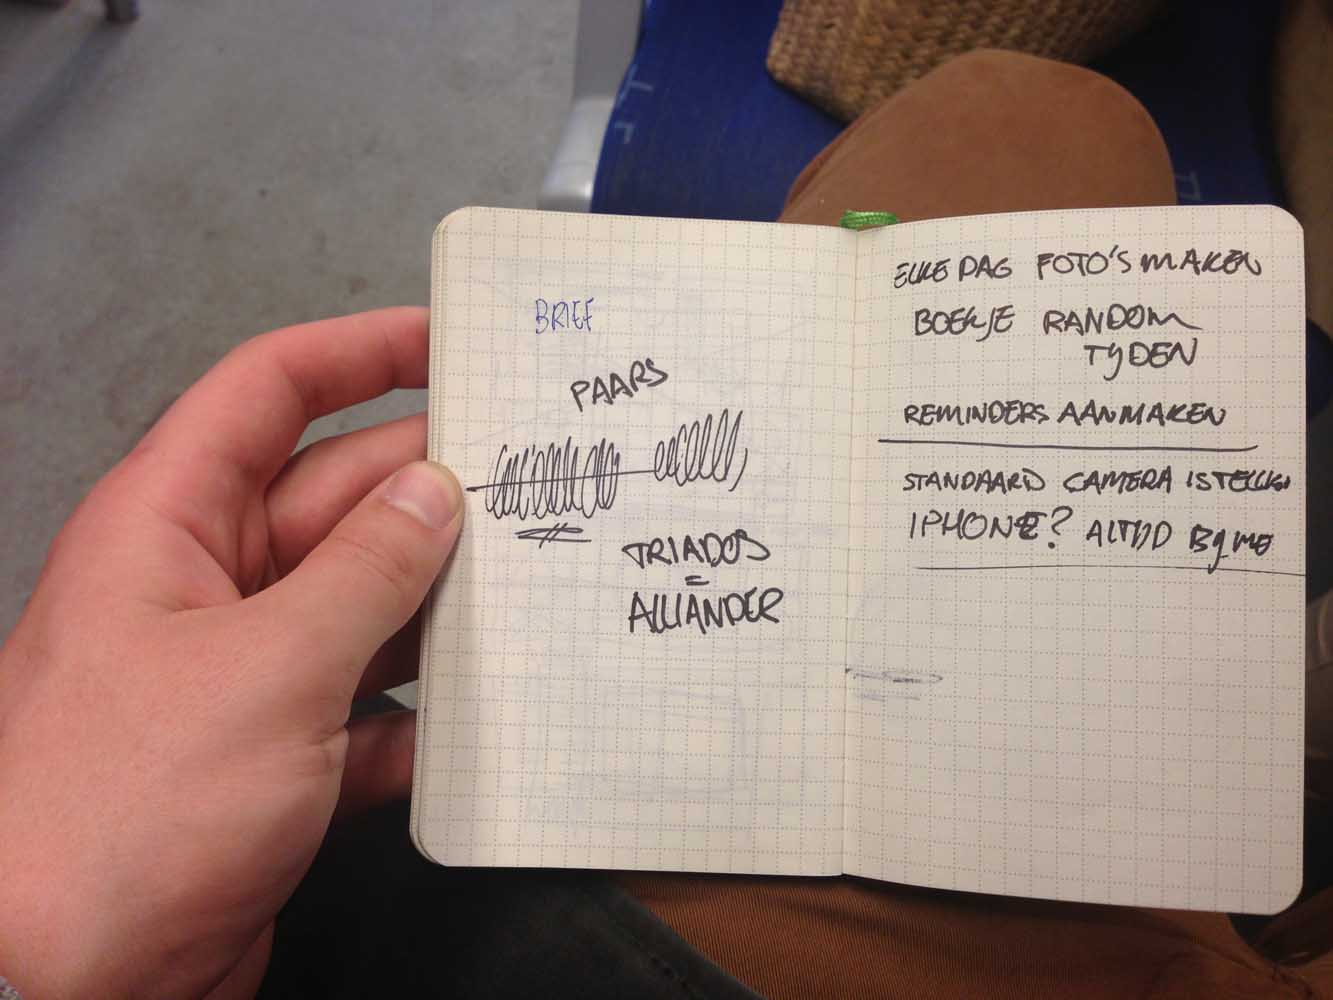 BRIEF
PAARS
TRIADOS
=
ALLIANDER
ELKE DAG FOTO'S MAKEN
BOEKJE RANDOM
TIJDEN
REMINDERS AANMAKEN
STANDAARD CAMERA
IPHONE? ALTIJD BIJ ME